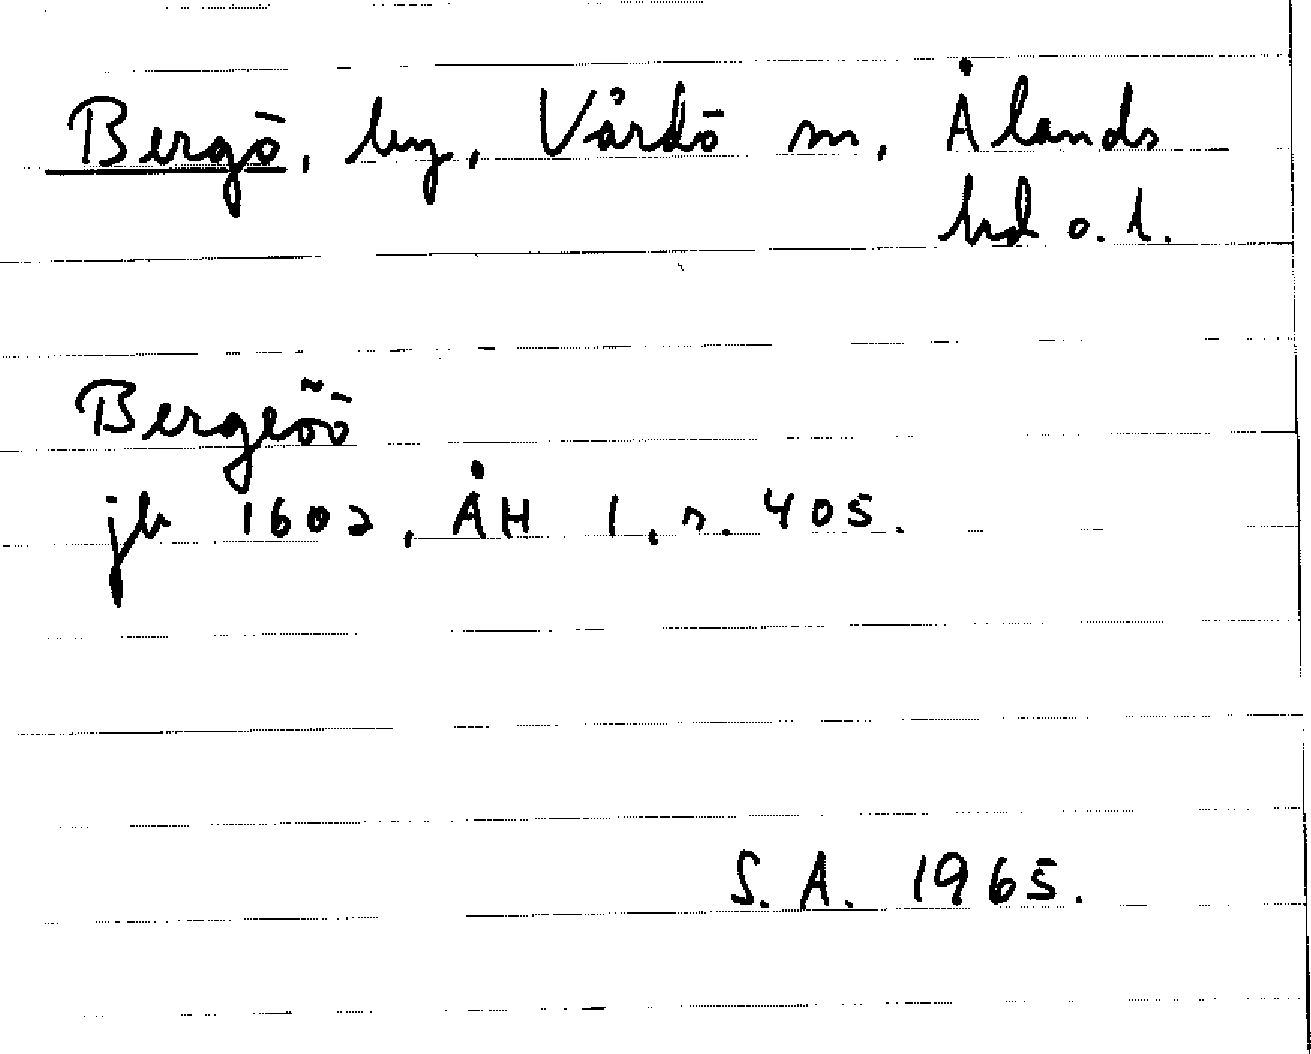 Bergö, by, Vårdö sn, Ålands
hd o. l.
Bergeöö
jb 1602, ÅH 1, s. 405.
S.A. 1965.